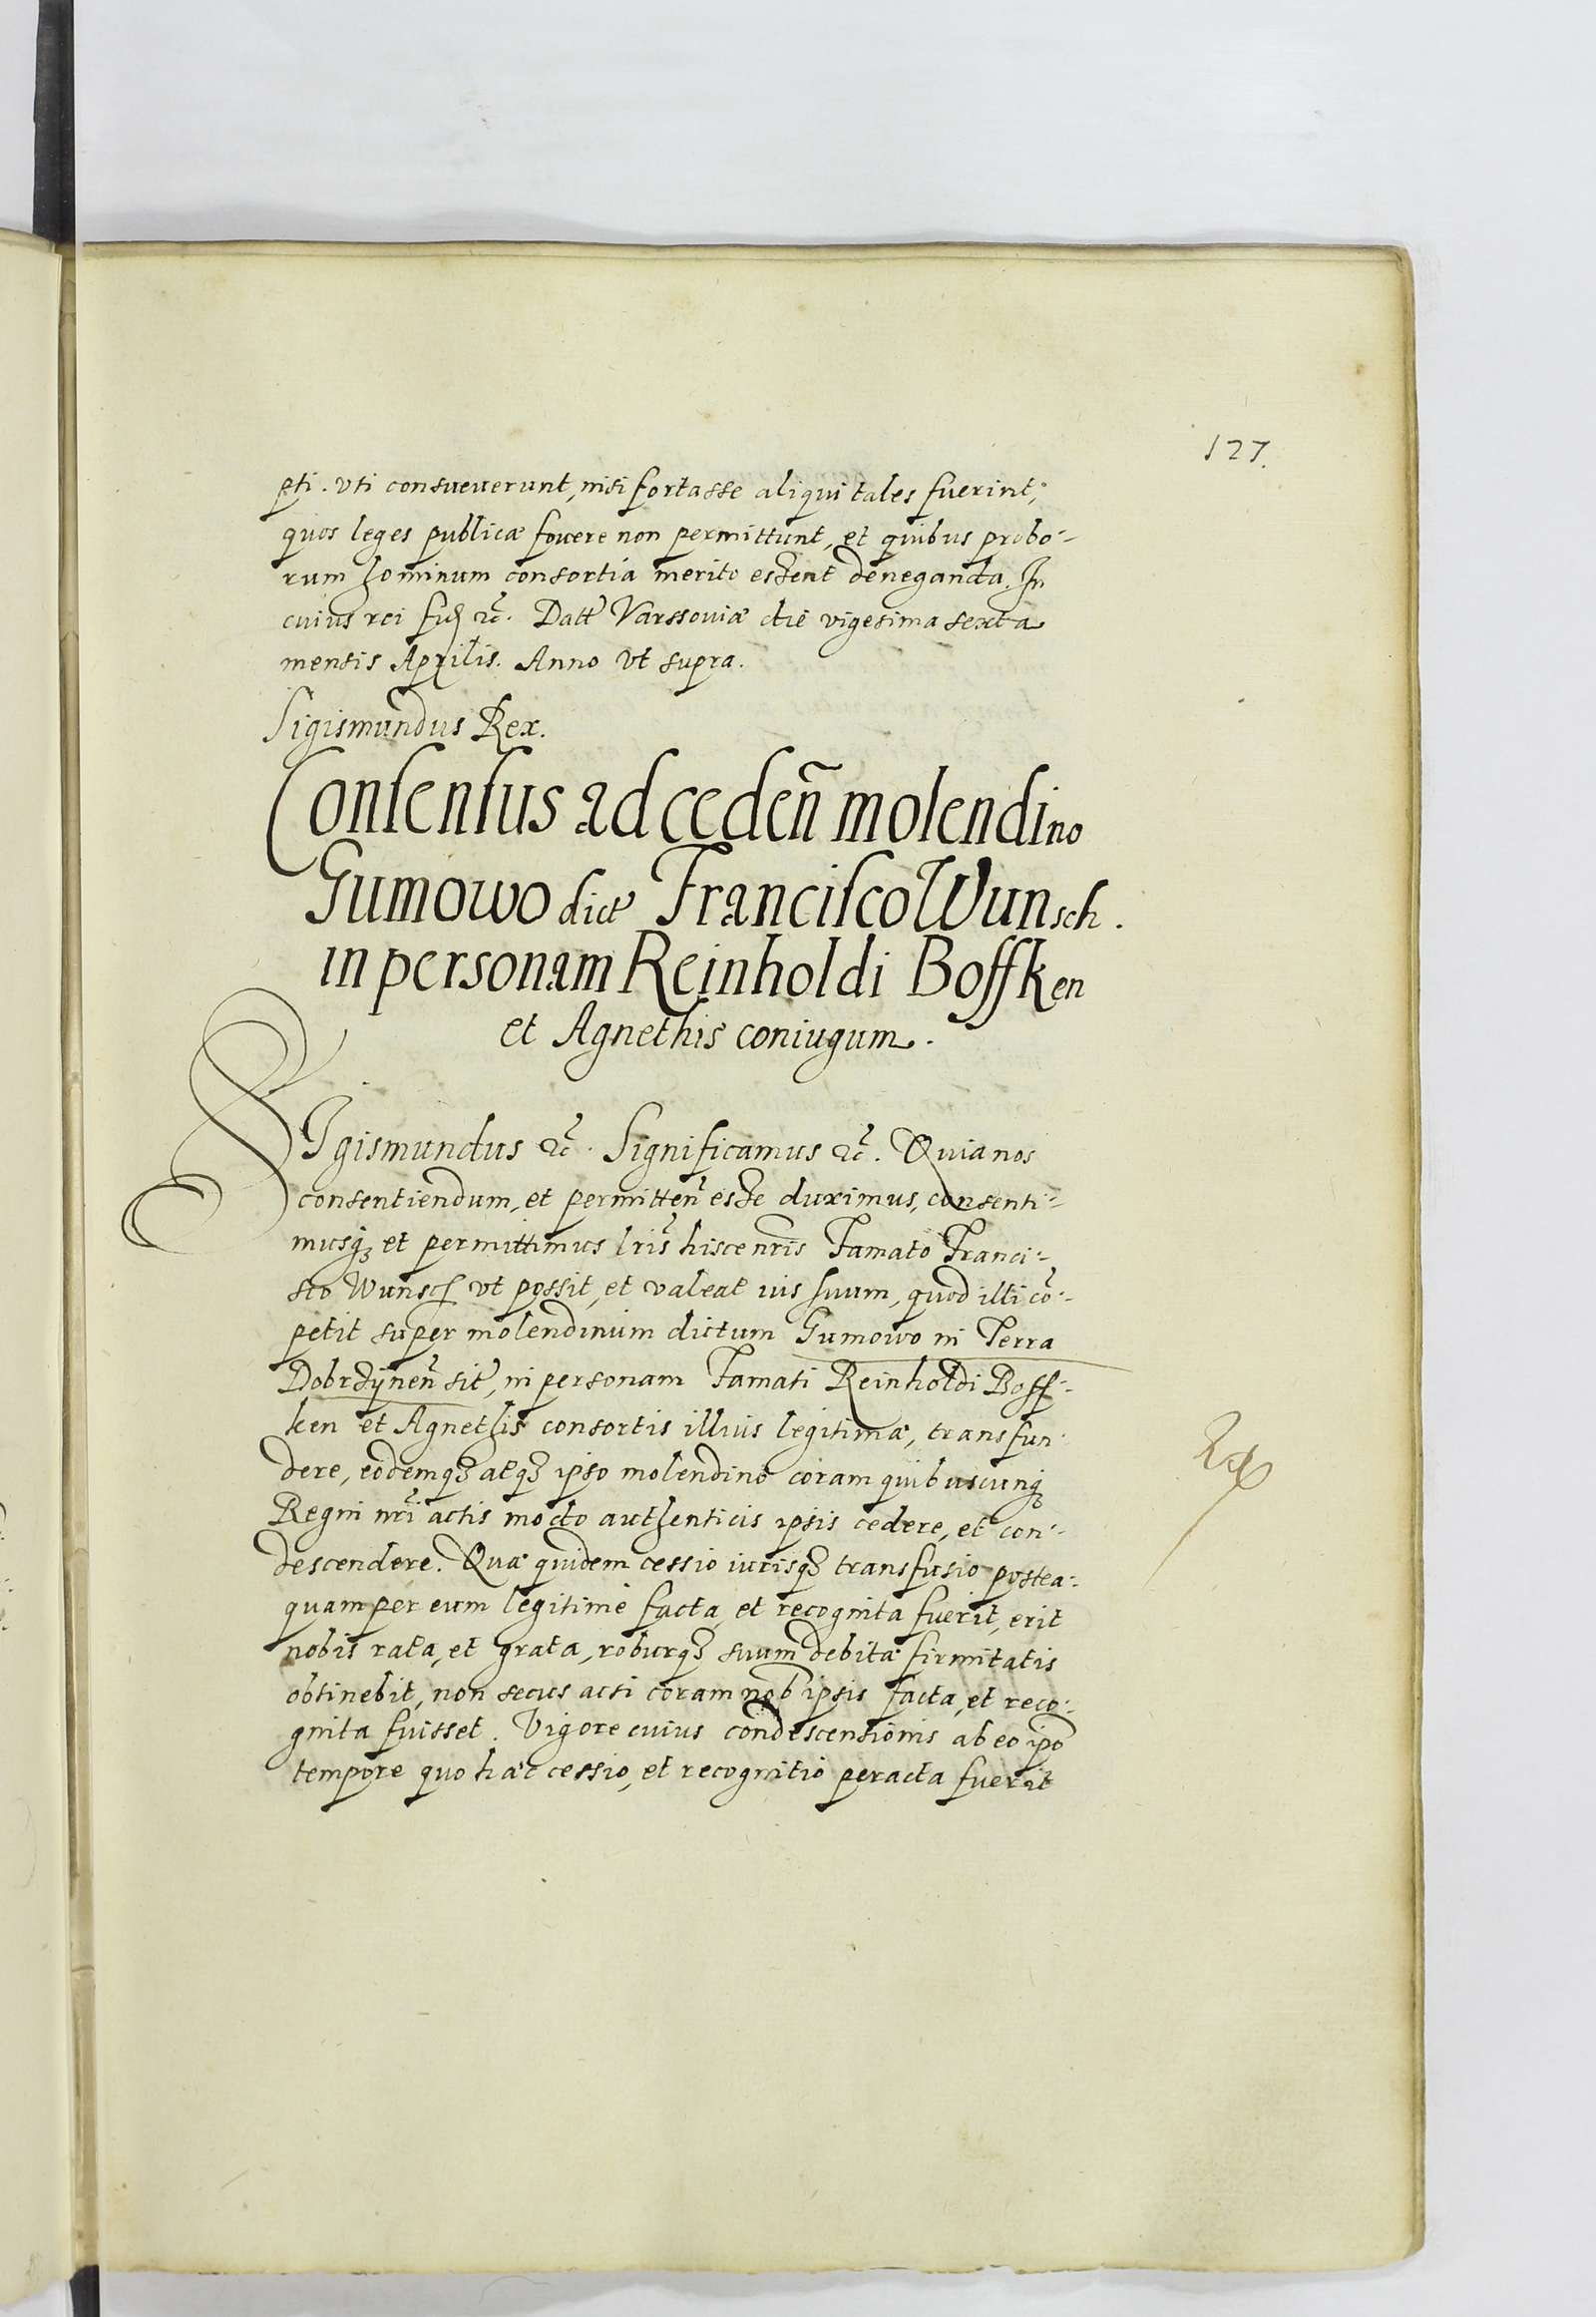 127.
pti. Vti consueuerunt, nisi fortasse aliqui tales fuerint,
quos leges publicæ fouere non permittunt, et quibus probo-
rum hominum consortia merito essent deneganda. In
cuius rei fid̃ ꝛc̃. Datt̃ Varssouiæ die vigesima sexta
mensis Aprilis. Anno vt supra.
Sigismundus Rex.
Consensus ad ceden̄ molendino
Gumowo dict̃ Francisco Wunsch.
in personam Reinholdi Boffken
et Agnethis coniugum.
SIgismundus ꝛc̃. Significamus ꝛc̃. Quia nos
consentiendum, et permitten̄ esse duximus, consenti-
musqꝫ et permittimus lrĩs hisce nrĩs Famato Franci-
sco Wunsch vt possit, et valeat ius suum, quod illi cõ-
petit super molendinum dictum Gumowo in Terra
Dobrzÿnen̄ sit̃, in personam Famati Reinholdi Boff-
ken et Agnethis consortis illius legitimæ, transfun-
dere, eodemqꝫ atqꝫ ipso molendino coram quibuscunqꝫ
Regni nrĩ actis modo authenticis ipsis cedere, et con-
descendere. Quæ quidem cessio iurisqꝫ transfusio postea-
quam per eum legitime facta, et recognita fuerit, erit
nobis rata, et grata, roburqꝫ suum debitæ firmitatis
obtinebit, non secus acsi coram nob̃ ipsis facta, et reco-
gnita fuisset. Vigore cuius condescensionis ab eo ipõ
tempore quo hæc cessio, et recognitio peracta fuerit